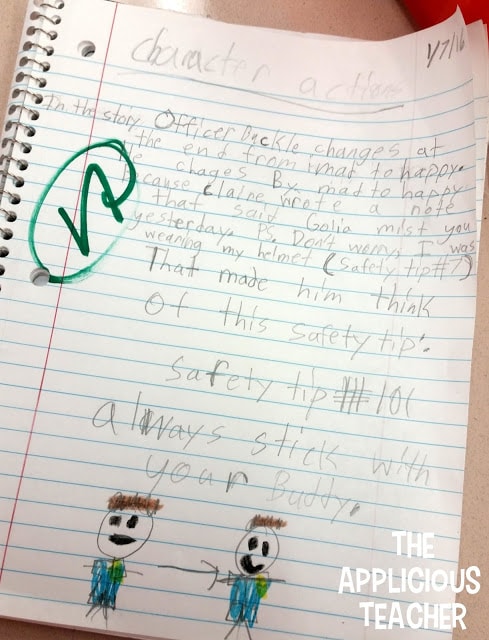 1/7/16
Character actions
In the story Officer Buckle changes at
the end from mad to happy.
He chages By mad to happy
because Claine wrote a note
that said Golia mist you
yesterday. PS. Don't worry, I was
wearing my helmet (Safety tip #7)
That made him think
of this safety tip:
Safety tip #101
always stick with
your Buddy.
THE
APPLICIOUS
TEACHER